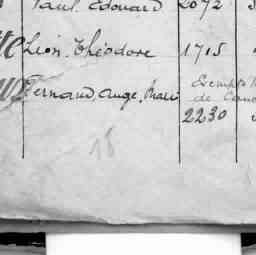 Paul Edouard 2072
Léon Théodore 1715
Fernand, Ange, Marie Exempté
de
2230
18